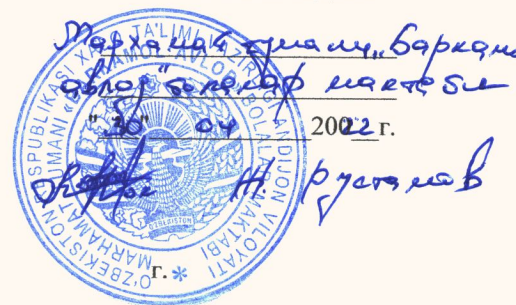 Марҳамат тумани „Баркамол
авлод" болалар мактаби
"30" 04 2022 г.
Ж. Рустамов
г. *
O'ZBEKISTON RESPUBLIKASI XALQ TA'LIMI VAZIRLIGI ANDIJON VILOYATI
MARHAMAT TUMANI «BARKAMOL AVLOD» BOLALAR MAKTABI
O'ZBEKISTON